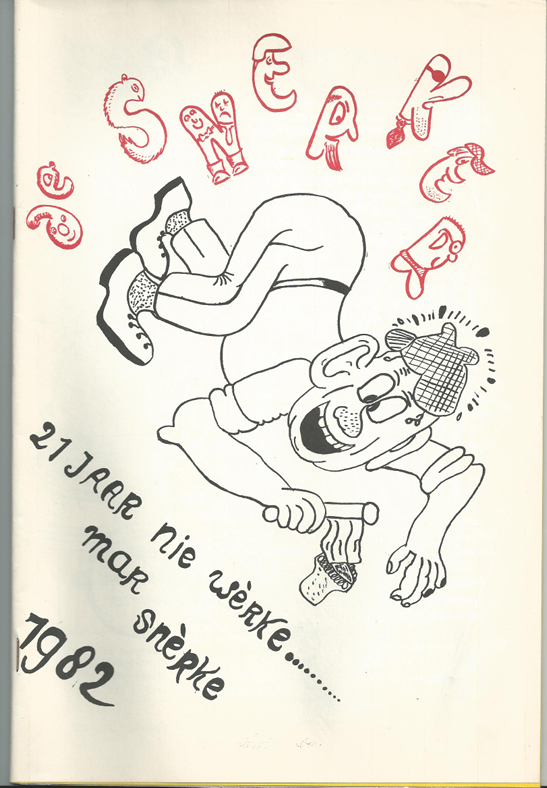 De SNERKER
21 JAAR nie wèRKe............
mAR snèRKe
1982